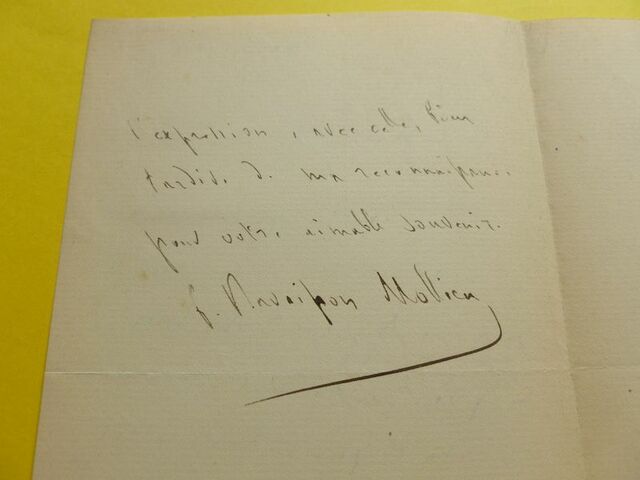 l'expression, avec celle, bien
tardive de ma reconnaissance
pour votre aimable souvenir.
F. Ravaisson Mollien